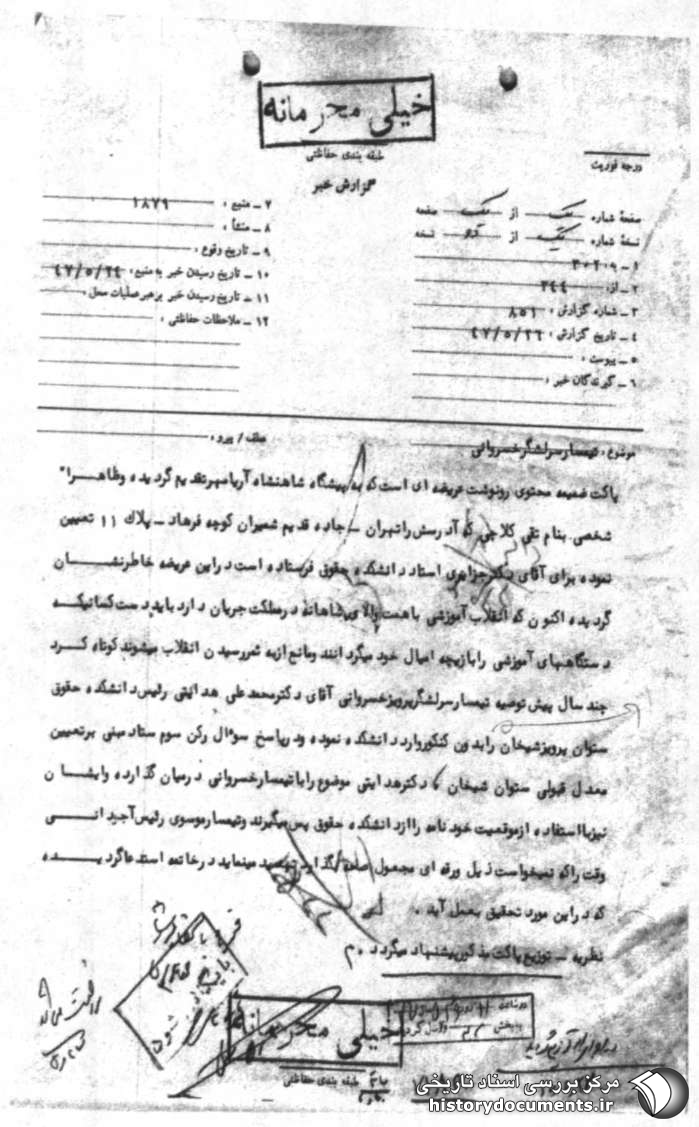 خیلی محرمانه
طبقه بندی حفاظتی
درجه فوریت
گزارش خبر
صفحهٔ شماره یک از یک صفحه
نسخهٔ شماره از نسخه
۱ - ۳۰۲۰۹
۲ - از: ۳۴۴
۳ - شماره گزارش: ۸۵۱
۴ - تاریخ گزارش: ۴۷/۵/۲۶
۵ - پیوست:
۶ - گیرندگان خبر:
۷ - منبع: ۱۸۷۹
۸ - منشأ:
۹ - تاریخ وقوع:
۱۰ - تاریخ رسیدن خبر به منبع: ۴۷/۵/۲۴
۱۱ - تاریخ رسیدن خبر برهبر عملیات محل:
۱۲ - ملاحظات حفاظتی:
موضوع: تیمسار سرلشگر خسروانی
عطف / پیرو:
پاکت ضمیمه محتوی رونوشت عریضه ای است که به پیشگاه شاهنشاه آریامهر تقدیم گردیده وظاهراً
شخصی بنام تقی کلاجی که آدرسش راتهران - جاده قدیم شمیران کوچه فرهاد - پلاک ۱۱ تعیین
نموده برای آقای دکتر جزایری استاد دانشکده حقوق فرستاده است در این عریضه خاطرنشان
گردیده اکنون که انقلاب آموزشی باهمت والای شاهانه در مملکت جریان دارد باید دست کسانیکه
دستگاههای آموزشی را بازیچه امیال خود میگردانند ومانع از به ثمر رسیدن انقلاب میشوند کوتاه کرد
چند سال پیش توصیه تیمسار سرلشگر پرویز خسروانی آقای دکتر محمد علی هدایتی رئیس دانشکده حقوق
ستوان پرویز شیخان را بدون کنکور وارد دانشکده نموده ودر پاسخ سؤال رکن سوم ستاد مبنی بر تعیین
معدل قبولی ستوان شیخان دکتر هدایتی موضوع را با تیمسار خسروانی در میان گذارده وایشان
نیز با استفاده از موقعیت خود نامه را از دانشکده حقوق پس میگیرند وتیمسار موسوی رئیس آجودانی
وقت راکه نمیخواست ذیل ورقه ای مجعول صحه بگذارد تهدید مینماید در خاتمه استدعا گردیده
که در این مورد تحقیق بعمل آید.
نظریه - توزیع پاکت مذکور پیشنهاد میگردد. م
خیلی محرمانه
طبقه بندی حفاظتی
مرکز بررسی اسناد تاریخی
historydocuments.ir